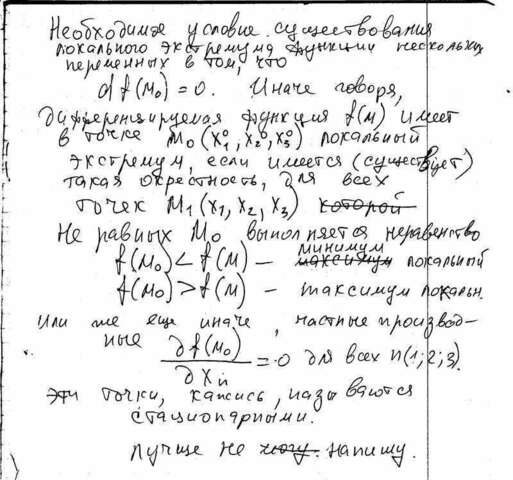 Необходимое условие существования
локального экстремума функции нескольких
переменных в том, что
df(M₀)=0. Иначе говоря,
дифференцируемая функция f(M) имеет
в точке M₀(x₁⁰, x₂⁰, x₃⁰) локальный
экстремум, если имеется (существует)
такая окрестность, для всех
точек M₁(x₁, x₂, x₃) которой
не равных M₀ выполняется неравенство
минимум
f(M₀) < f(M) – максимум локальный
f(M₀) > f(M) – максимум локальн.
Или же еще иначе, частные производ-
ные ∂f(M₀)/∂xₙ = 0 для всех n(1;2;3).
эти точки, кажись, называются
стационарными.
Лучше не могу напишу.